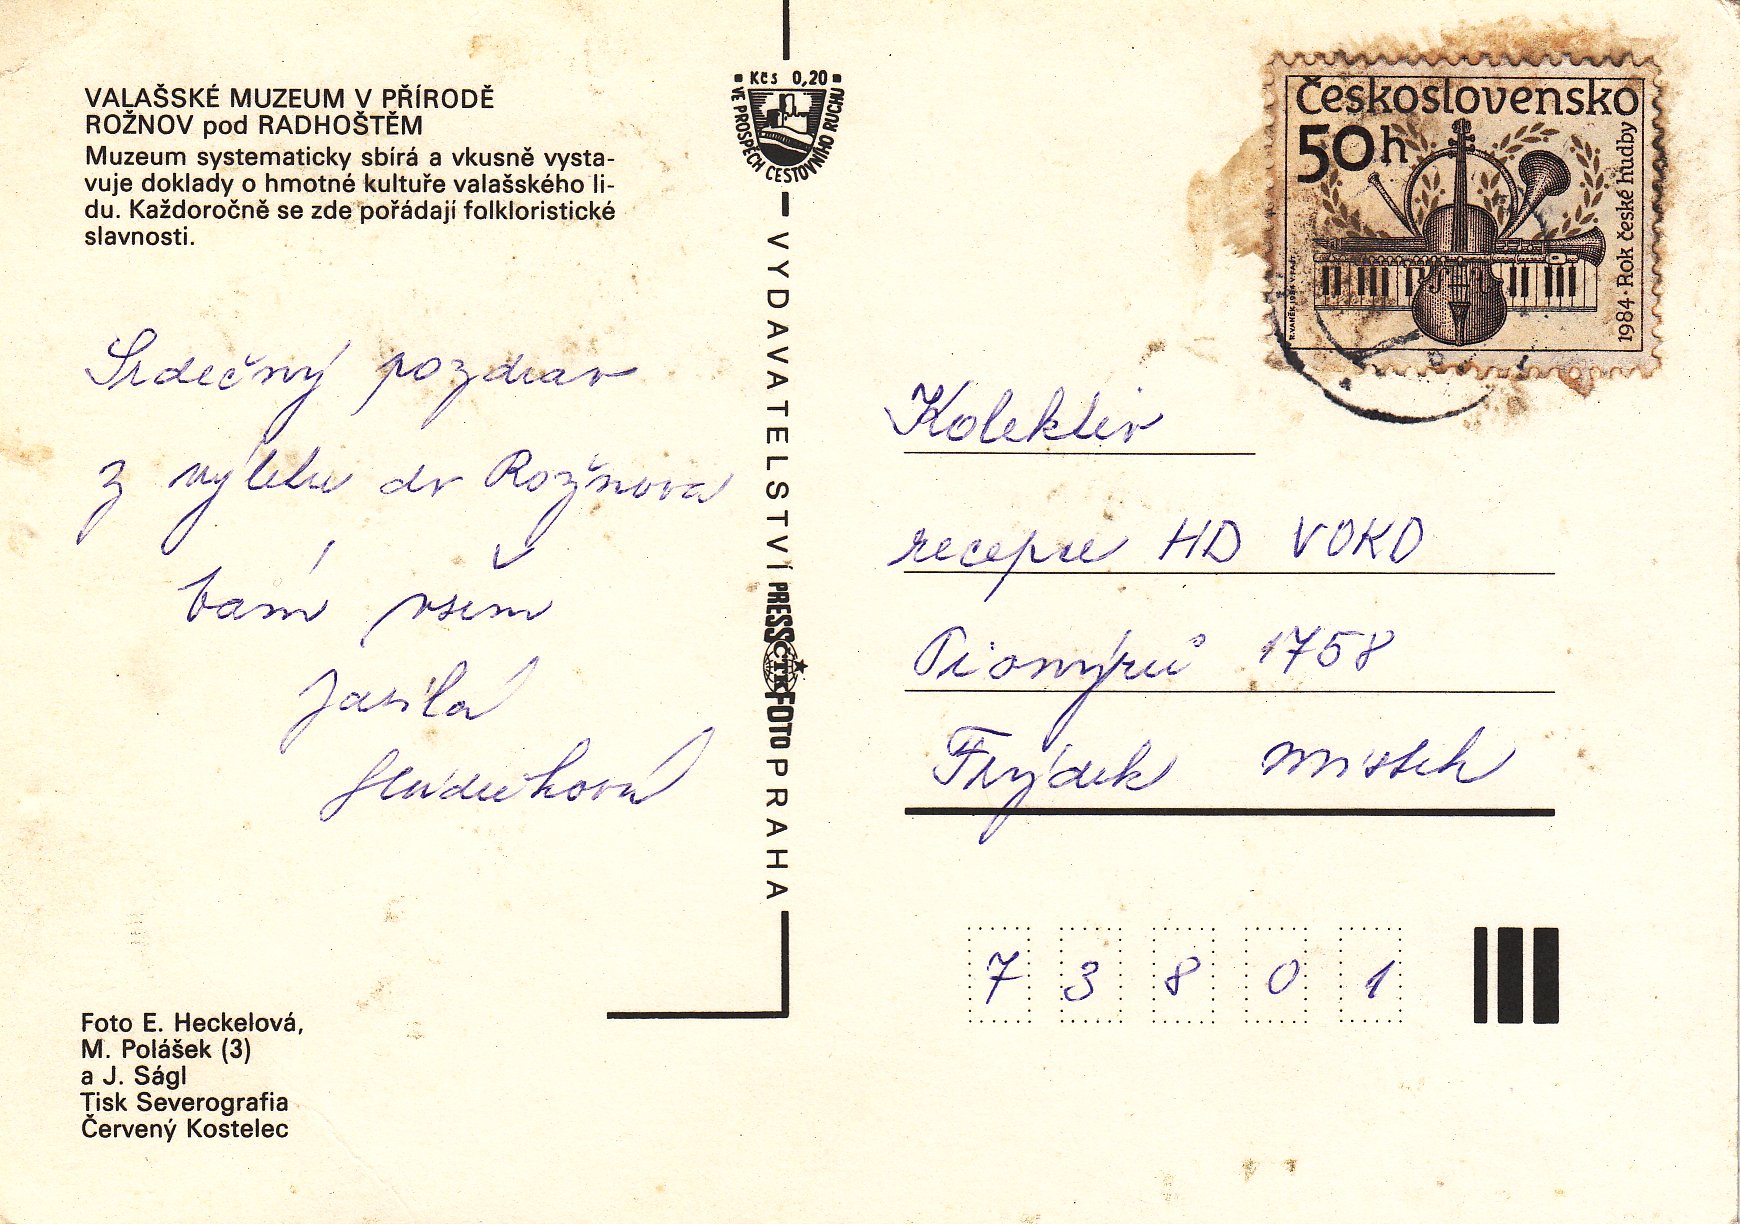 VALAŠSKÉ MUZEUM V PŘÍRODĚ
ROŽNOV pod RADHOŠTĚM
Muzeum systematicky sbírá a vkusně vysta-
vuje doklady o hmotné kultuře valašského li-
du. Každoročně se zde pořádají folkloristické
slavnosti.
Srdečný pozdrav
z výletu do Rožnova
Vám všem
zasílá
Foto E. Heckelová,
M. Polášek (3)
a J. Ságl
Tisk Severografia
Červený Kostelec
Kčs 0,20
VE PROSPĚCH CESTOVNÍHO RUCHU
VYDAVATELSTVÍ PRESSFOTO PRAHA
ČTK
Československo
50h
1984 · Rok české hudby
Kolektiv
recepce HD VOKD
Pionýrů 1758
Frýdek Místek
73801